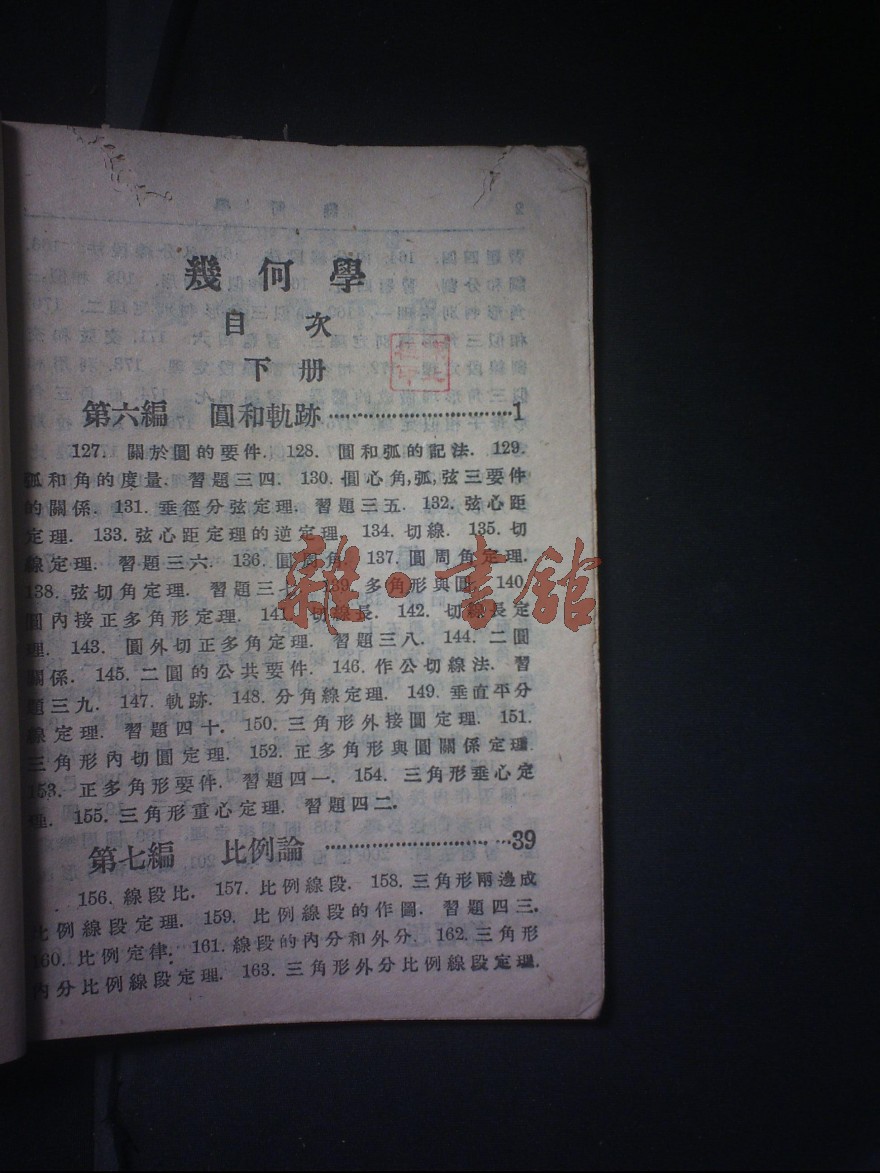 幾何學
目次
下册
第六編 圓和軌跡······························1
127. 關於圓的要件. 128. 圓和弧的記法. 129.
弧和角的度量. 習題三四. 130. 圓心角,弧,弦三要件
的關係. 131. 垂徑分弦定理. 習題三五. 132. 弦心距
定理. 133. 弦心距定理的逆定理. 134. 切線. 135. 切
線定理. 習題三六. 136. 圓周角. 137. 圓周角定理.
138. 弦切角定理. 習題三七. 139. 多角形與圓. 140.
圓內接正多角形定理. 141. 切線長. 142. 切線長定
理. 143. 圓外切正多角定理. 習題三八. 144. 二圓
關係. 145. 二圓的公共要件. 146. 作公切線法. 習
題三九. 147. 軌跡. 148. 分角線定理. 149. 垂直平分
線定理. 習題四十. 150. 三角形外接圓定理. 151.
三角形內切圓定理. 152. 正多角形與圓關係定理.
153. 正多角形要件. 習題四一. 154. 三角形垂心定
理. 155. 三角形重心定理. 習題四二.
第七編 比例論······························39
156. 線段比. 157. 比例線段. 158. 三角形兩邊成
比例線段定理. 159. 比例線段的作圖. 習題四三.
160. 比例定律. 161. 線段的內分和外分. 162. 三角形
內分比例線段定理. 163. 三角形外分比例線段定理.
雜·書館